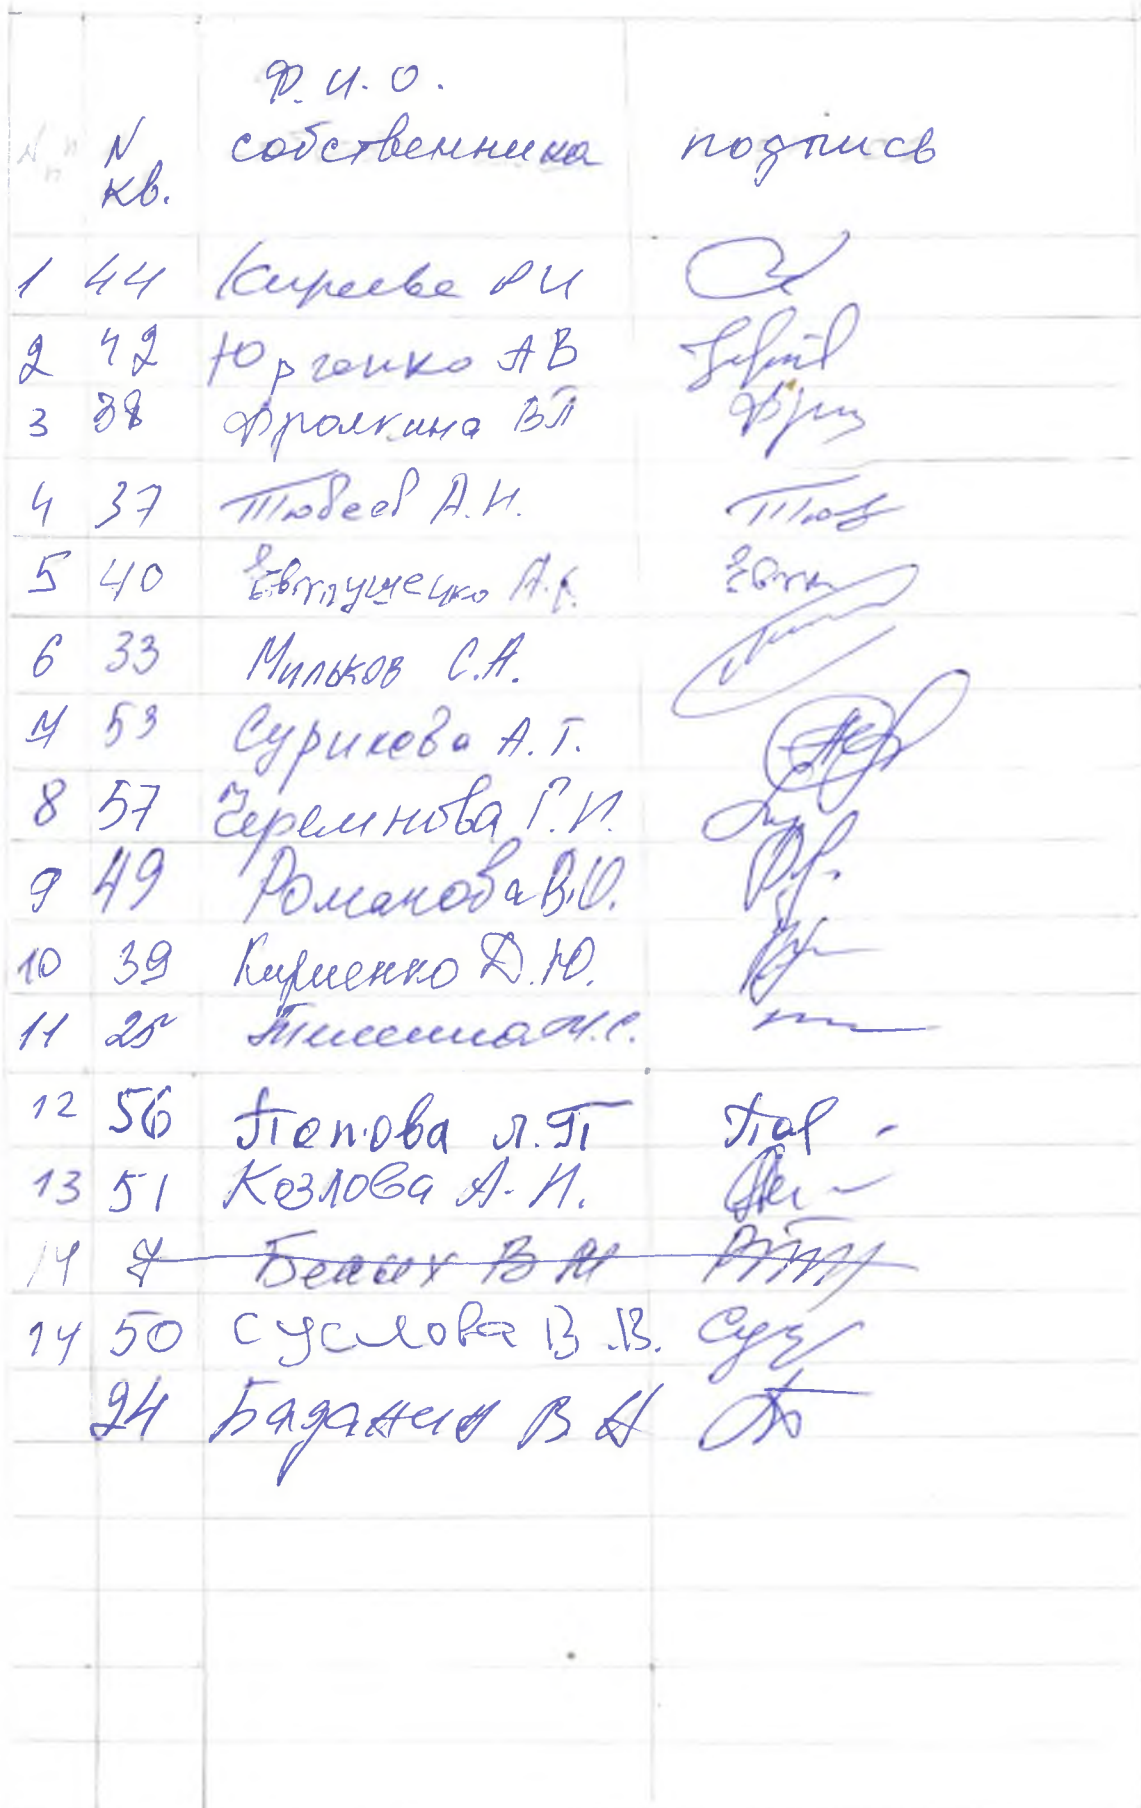 Ф.И.О.
N п п N кв. собственника подпись
1 44 Киреева РИ
2 42 Юрганко АВ
3 38 Фролкина ВП
4 37 Тюбеев А.Н.
5 40 Евтушенко А.
6 33 Мильков С.А.
7 53 Сурикова А.Г.
8 57 Черемнова Г.И.
9 49 Романова В.И.
10 39 Кириенко Д.Ю.
11 25 М.С.
12 56 Попова Л.П Поп
13 51 Козлова А.И.
14 7 Белых В М
14 50 Суслова В.В. Сус
24 Баданин В Н